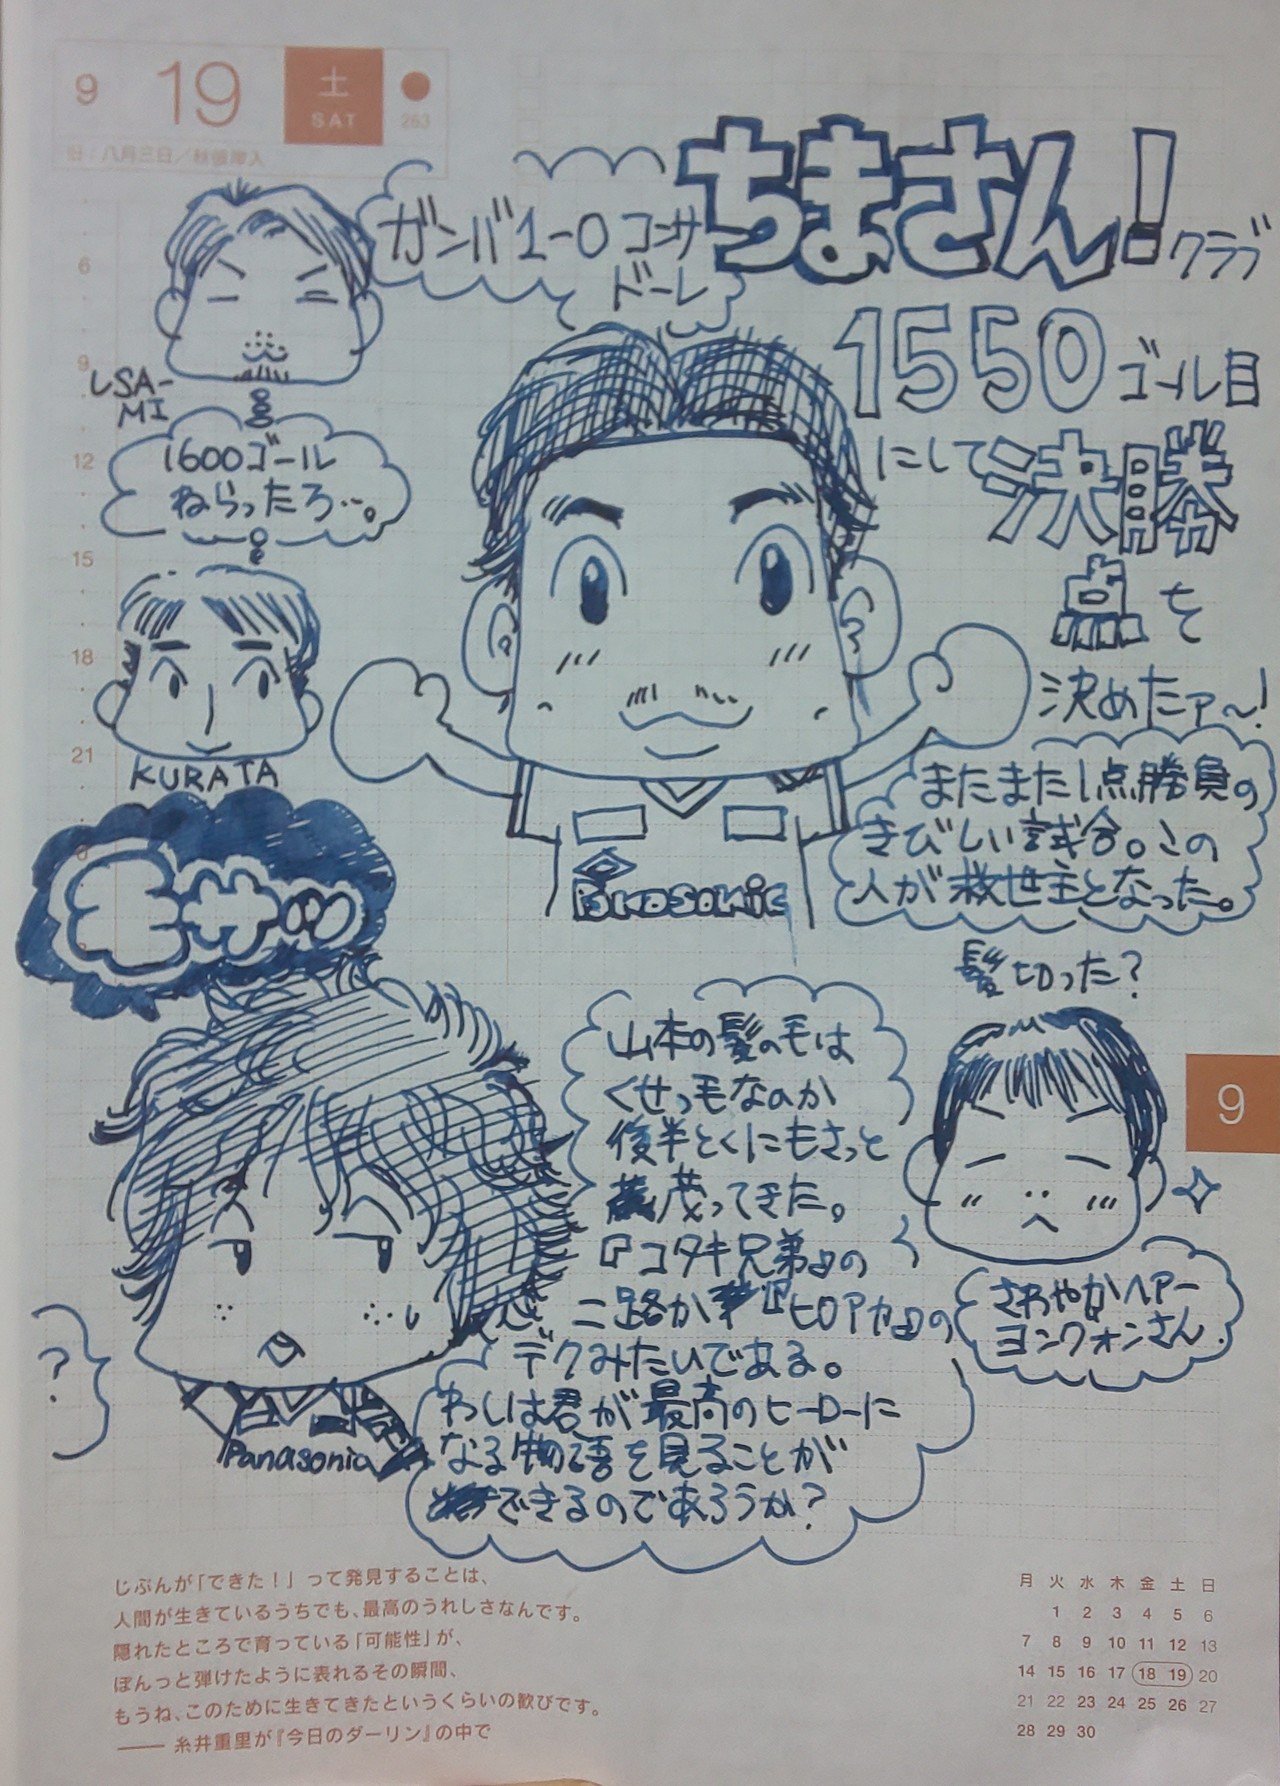 9 19 土 SAT 263
旧:八月三日/秋彼岸入
ガンバ1-0コンサドーレ
ちまさん!
クラブ
1550ゴール目
にして決勝
点を
決めたァ〜!
USA-
MI
1600ゴール
ねらったろ…。
KURATA
またまた1点勝負の
きびしい試合。この
人が救世主となった。
髪切った?
さわやかヘアー
ヨンウォンさん
山本の髪の毛は
くせっ毛なのか
後半とくにもさっと
茂ってきた。
『コタキ兄弟』の
二路か『ヒロアカ』の
デクみたいである。
わしは君が最高のヒーローに
なる物語を見ることが
できるのであろうか?
?
Panasonic
6
9
12
15
18
21
9
じぶんが「できた!」って発見することは、
人間が生きているうちでも、最高のうれしさなんです。
隠れたところで育っている「可能性」が、
ぽんっと弾けたように表れるその瞬間、
もうね、このために生きてきたというくらいの歓びです。
―― 糸井重里が『今日のダーリン』の中で
月 火 水 木 金 土 日
1 2 3 4 5 6
7 8 9 10 11 12 13
14 15 16 17 18 19 20
21 22 23 24 25 26 27
28 29 30